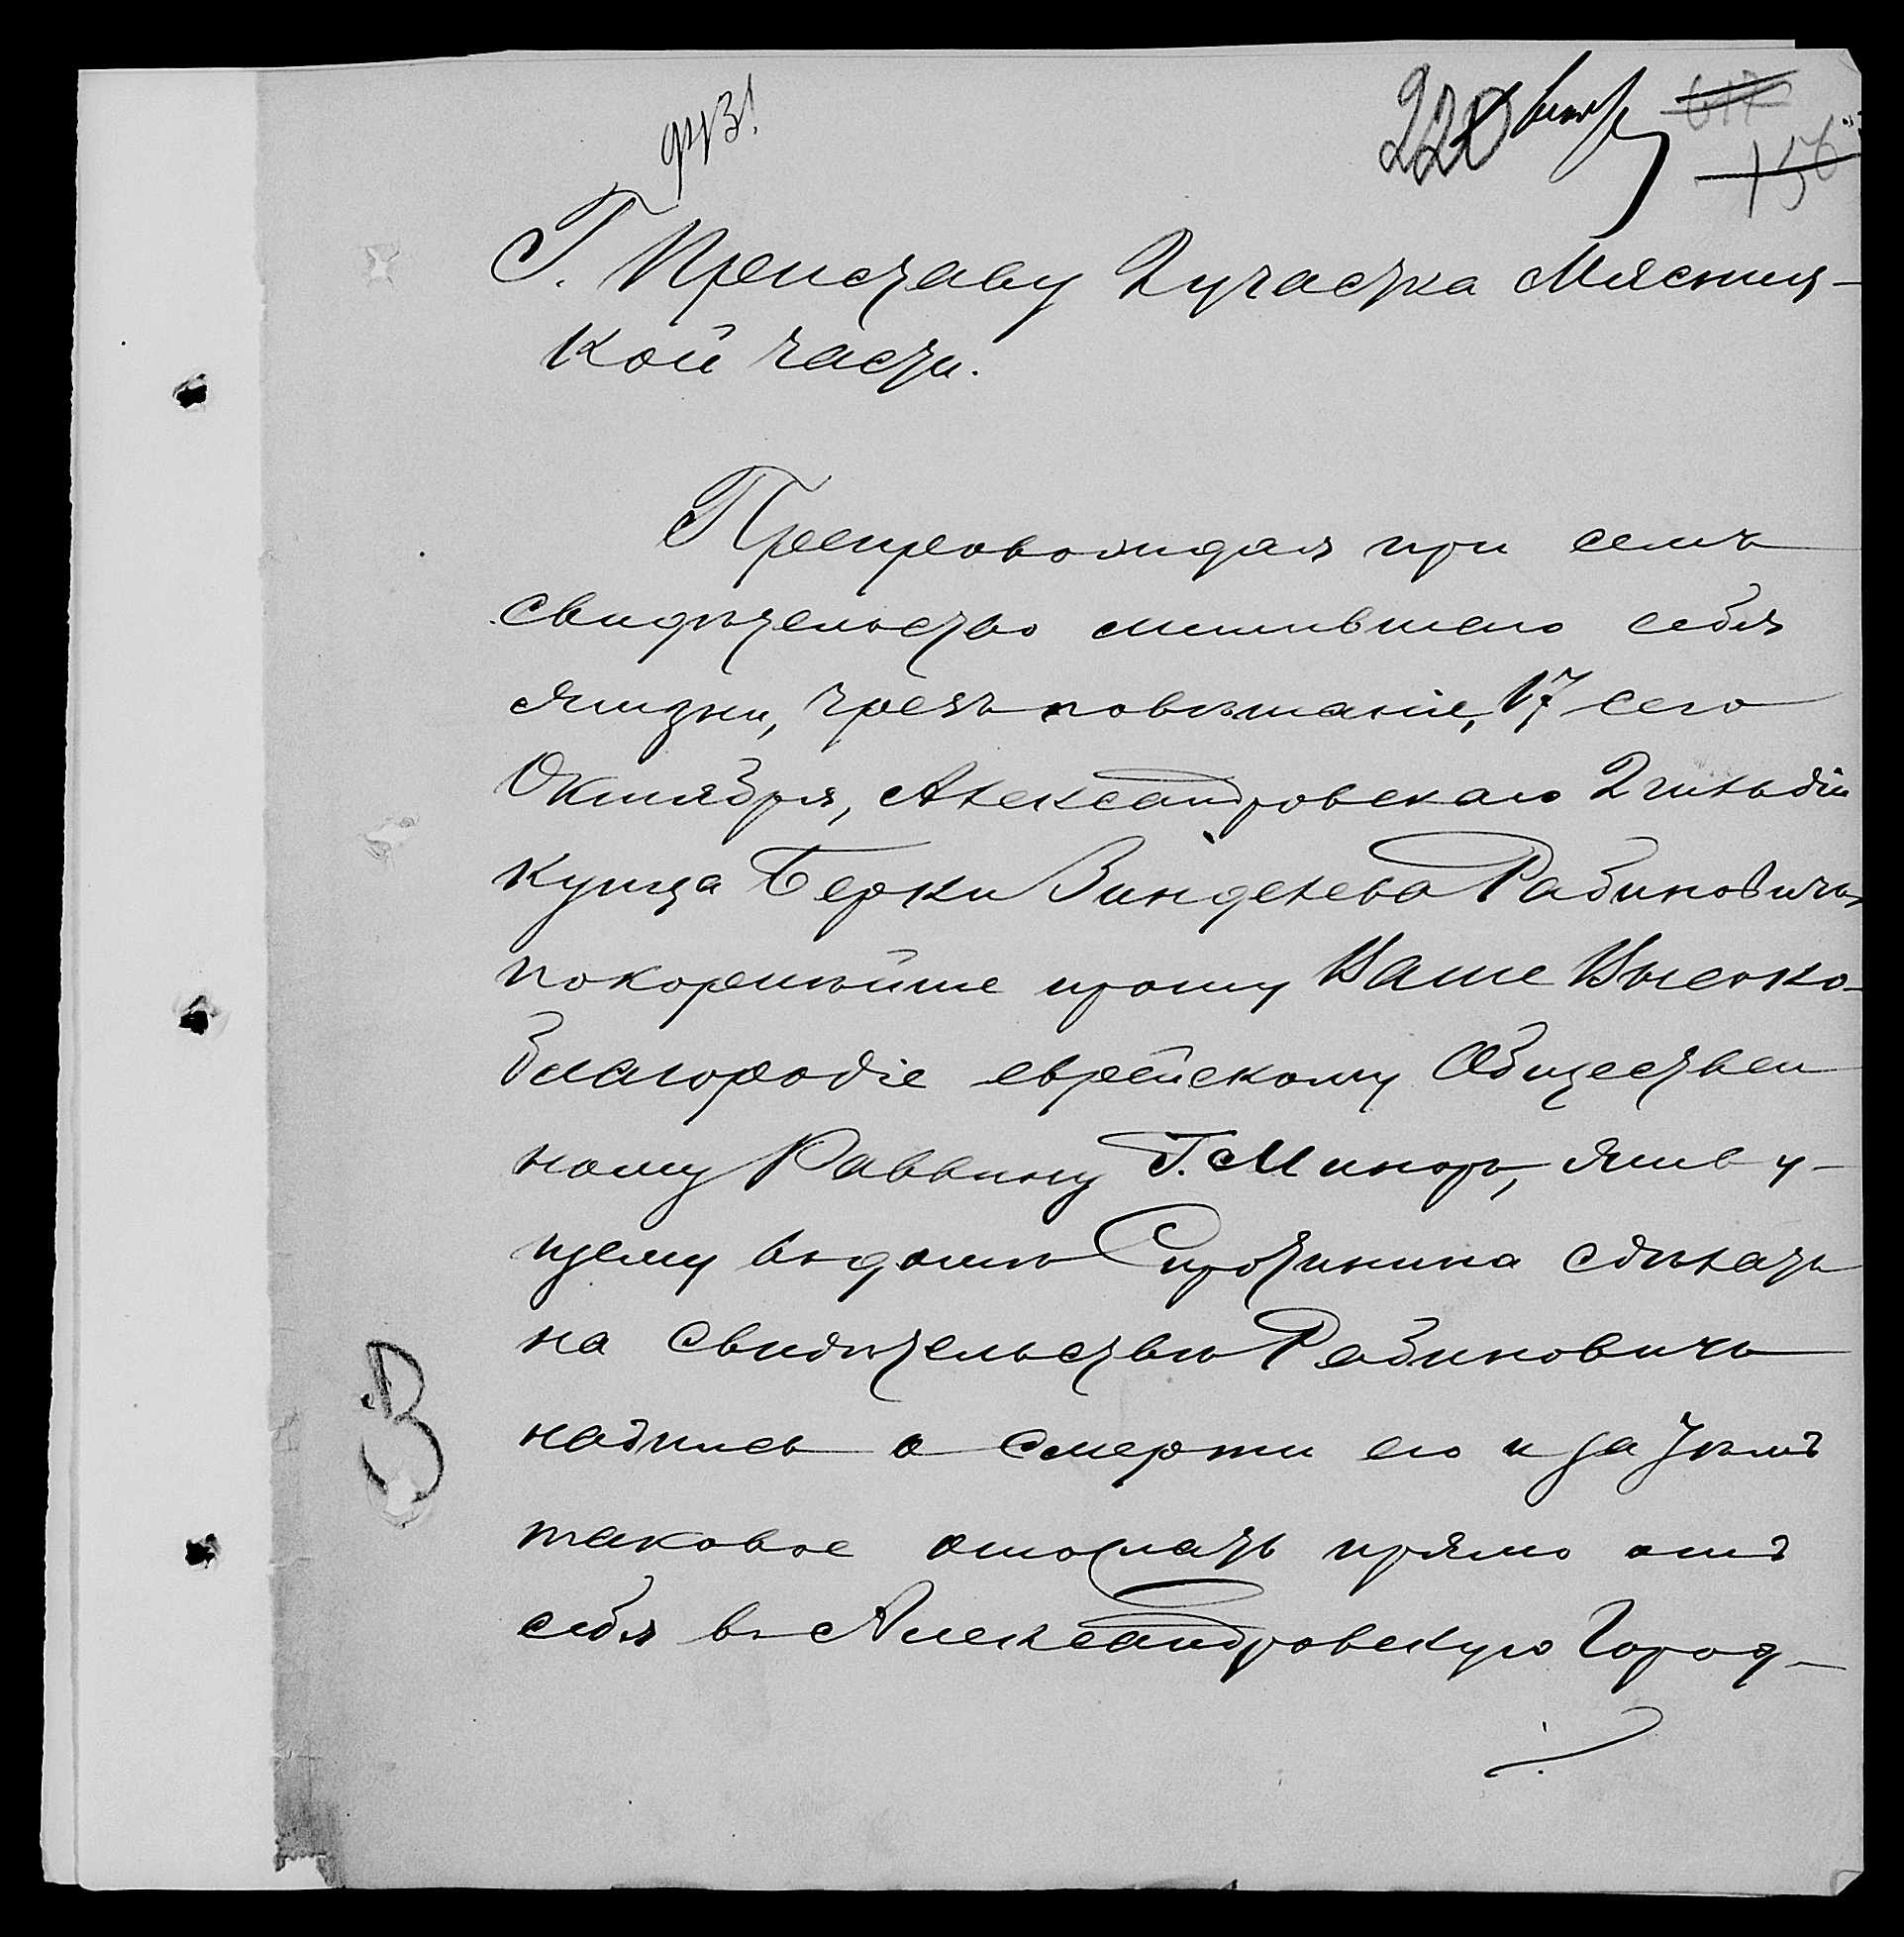 220
617
156
Г. Приставу 2 участка Мясниц-
кой части.
Препровождая при семъ
свидѣтельство лишившаго себя
жизни, чрезъ повѣшаніе, 17 сего
Октября, Александровскаго 2 гильдіи
купца Берки Зинделева Рабиновича
покорнѣйше прошу Ваше Высоко-
благородіе еврейскому Обществен
ному Раввину Г. Миноръ, живу-
щему въ домѣ сдѣлать
на свидѣтельствѣ Рабиновича
надпись о смерти его и за тѣмъ
таковое отослать прямо отъ
себя въ Александровскую Город-